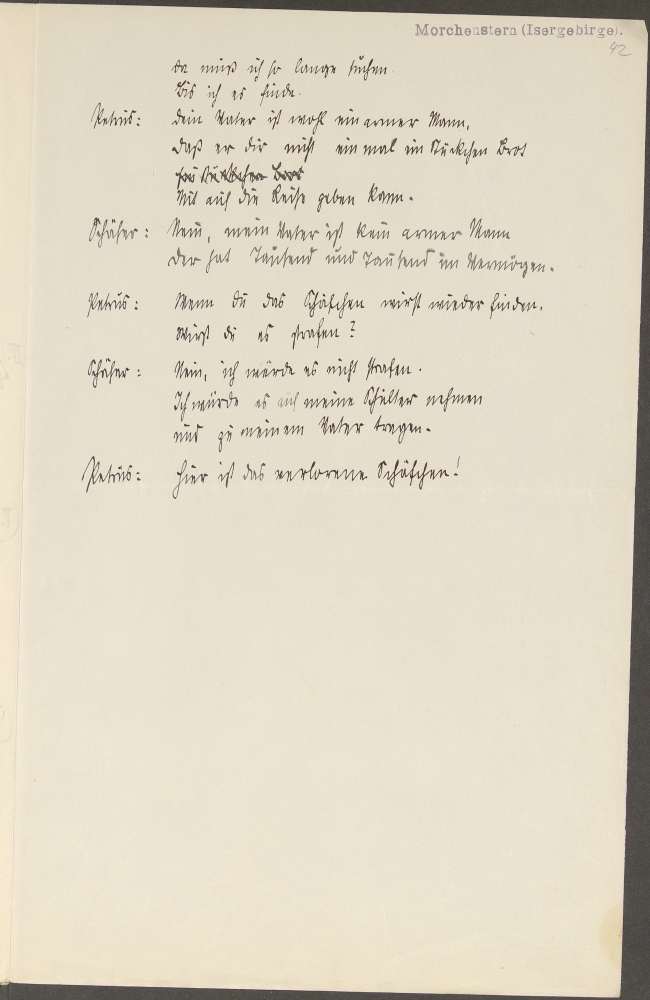 Morchenstern (Isergebirge).
42
da muß ich so lange suchen.
Bis ich es finde.
Petrus: Dein Vater ist wohl ein armer Mann,
Daß er dir nicht einmal ein Stückchen Brot
Mit auf die Reise geben kann.
Schäfer: Nein, mein Vater ist kein armer Mann
Der hat Tausend und Tausend im Vermögen.
Petrus: Wenn du das Schäfchen wirst wieder finden.
Wirst du es strafen?
Schäfer: Nein, ich würde es nicht strafen.
Ich würde es auf meine Schulter nehmen
und zu meinem Vater tragen.
Petrus: Hier ist das verlorene Schäfchen!